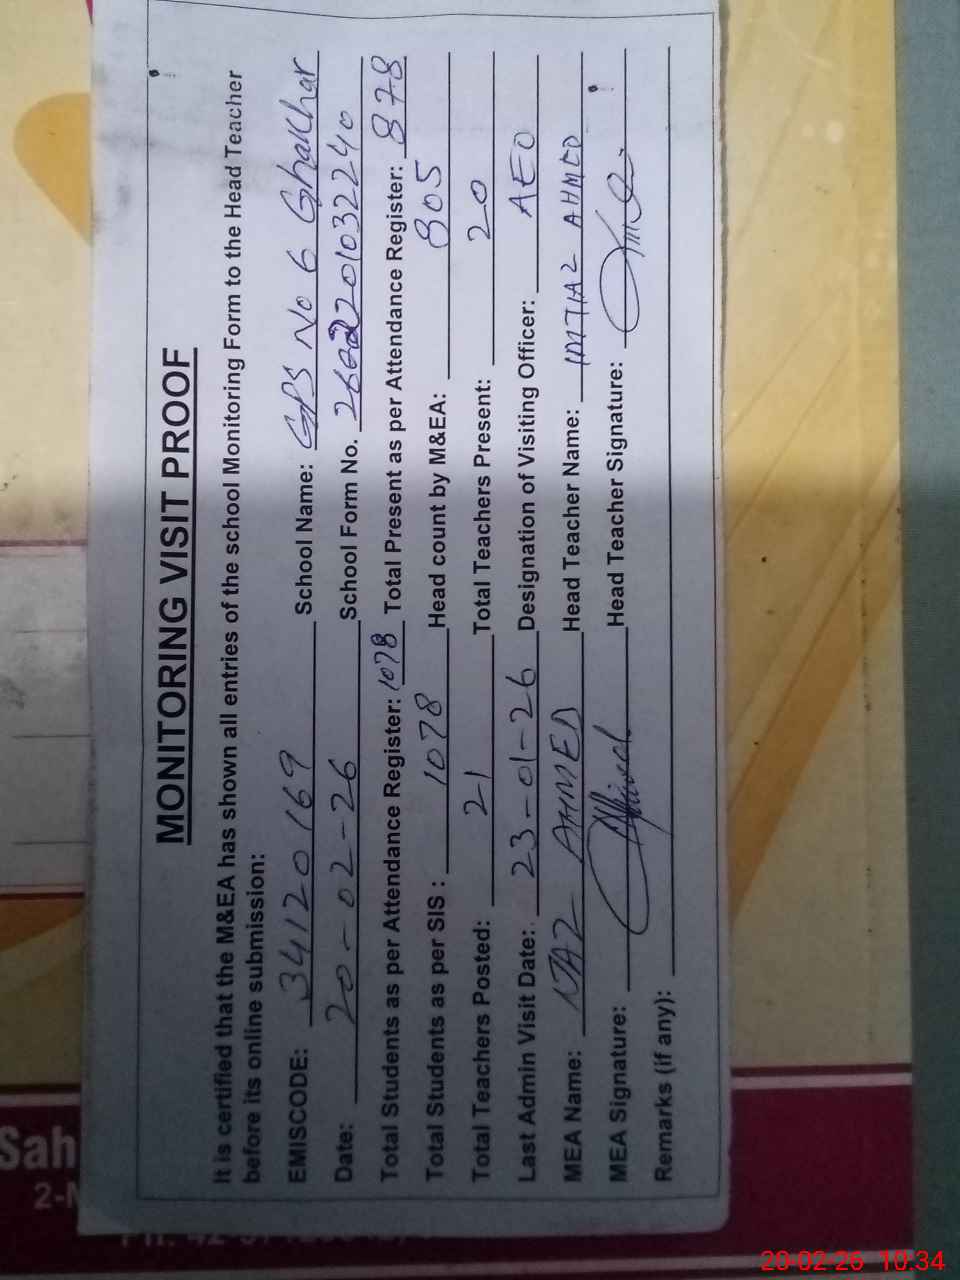 MONITORING VISIT PROOF
It is certified that the M&EA has shown all entries of the school Monitoring Form to the Head Teacher
before its online submission:
EMISCODE: 34120169 School Name: GPS No 6 Ghakhar
Date: 20-02-26 School Form No. 2602201032240
Total Students as per Attendance Register: 1078 Total Present as per Attendance Register: 878
Total Students as per SIS: 1078 Head count by M&EA: 805
Total Teachers Posted: 21 Total Teachers Present: 20
Last Admin Visit Date: 23-01-26 Designation of Visiting Officer: AEO
MEA Name: AHMED Head Teacher Name: IMTIAZ AHMED
MEA Signature: Head Teacher Signature:
Remarks (if any):
Sah
2-N
20-02-26 10:34